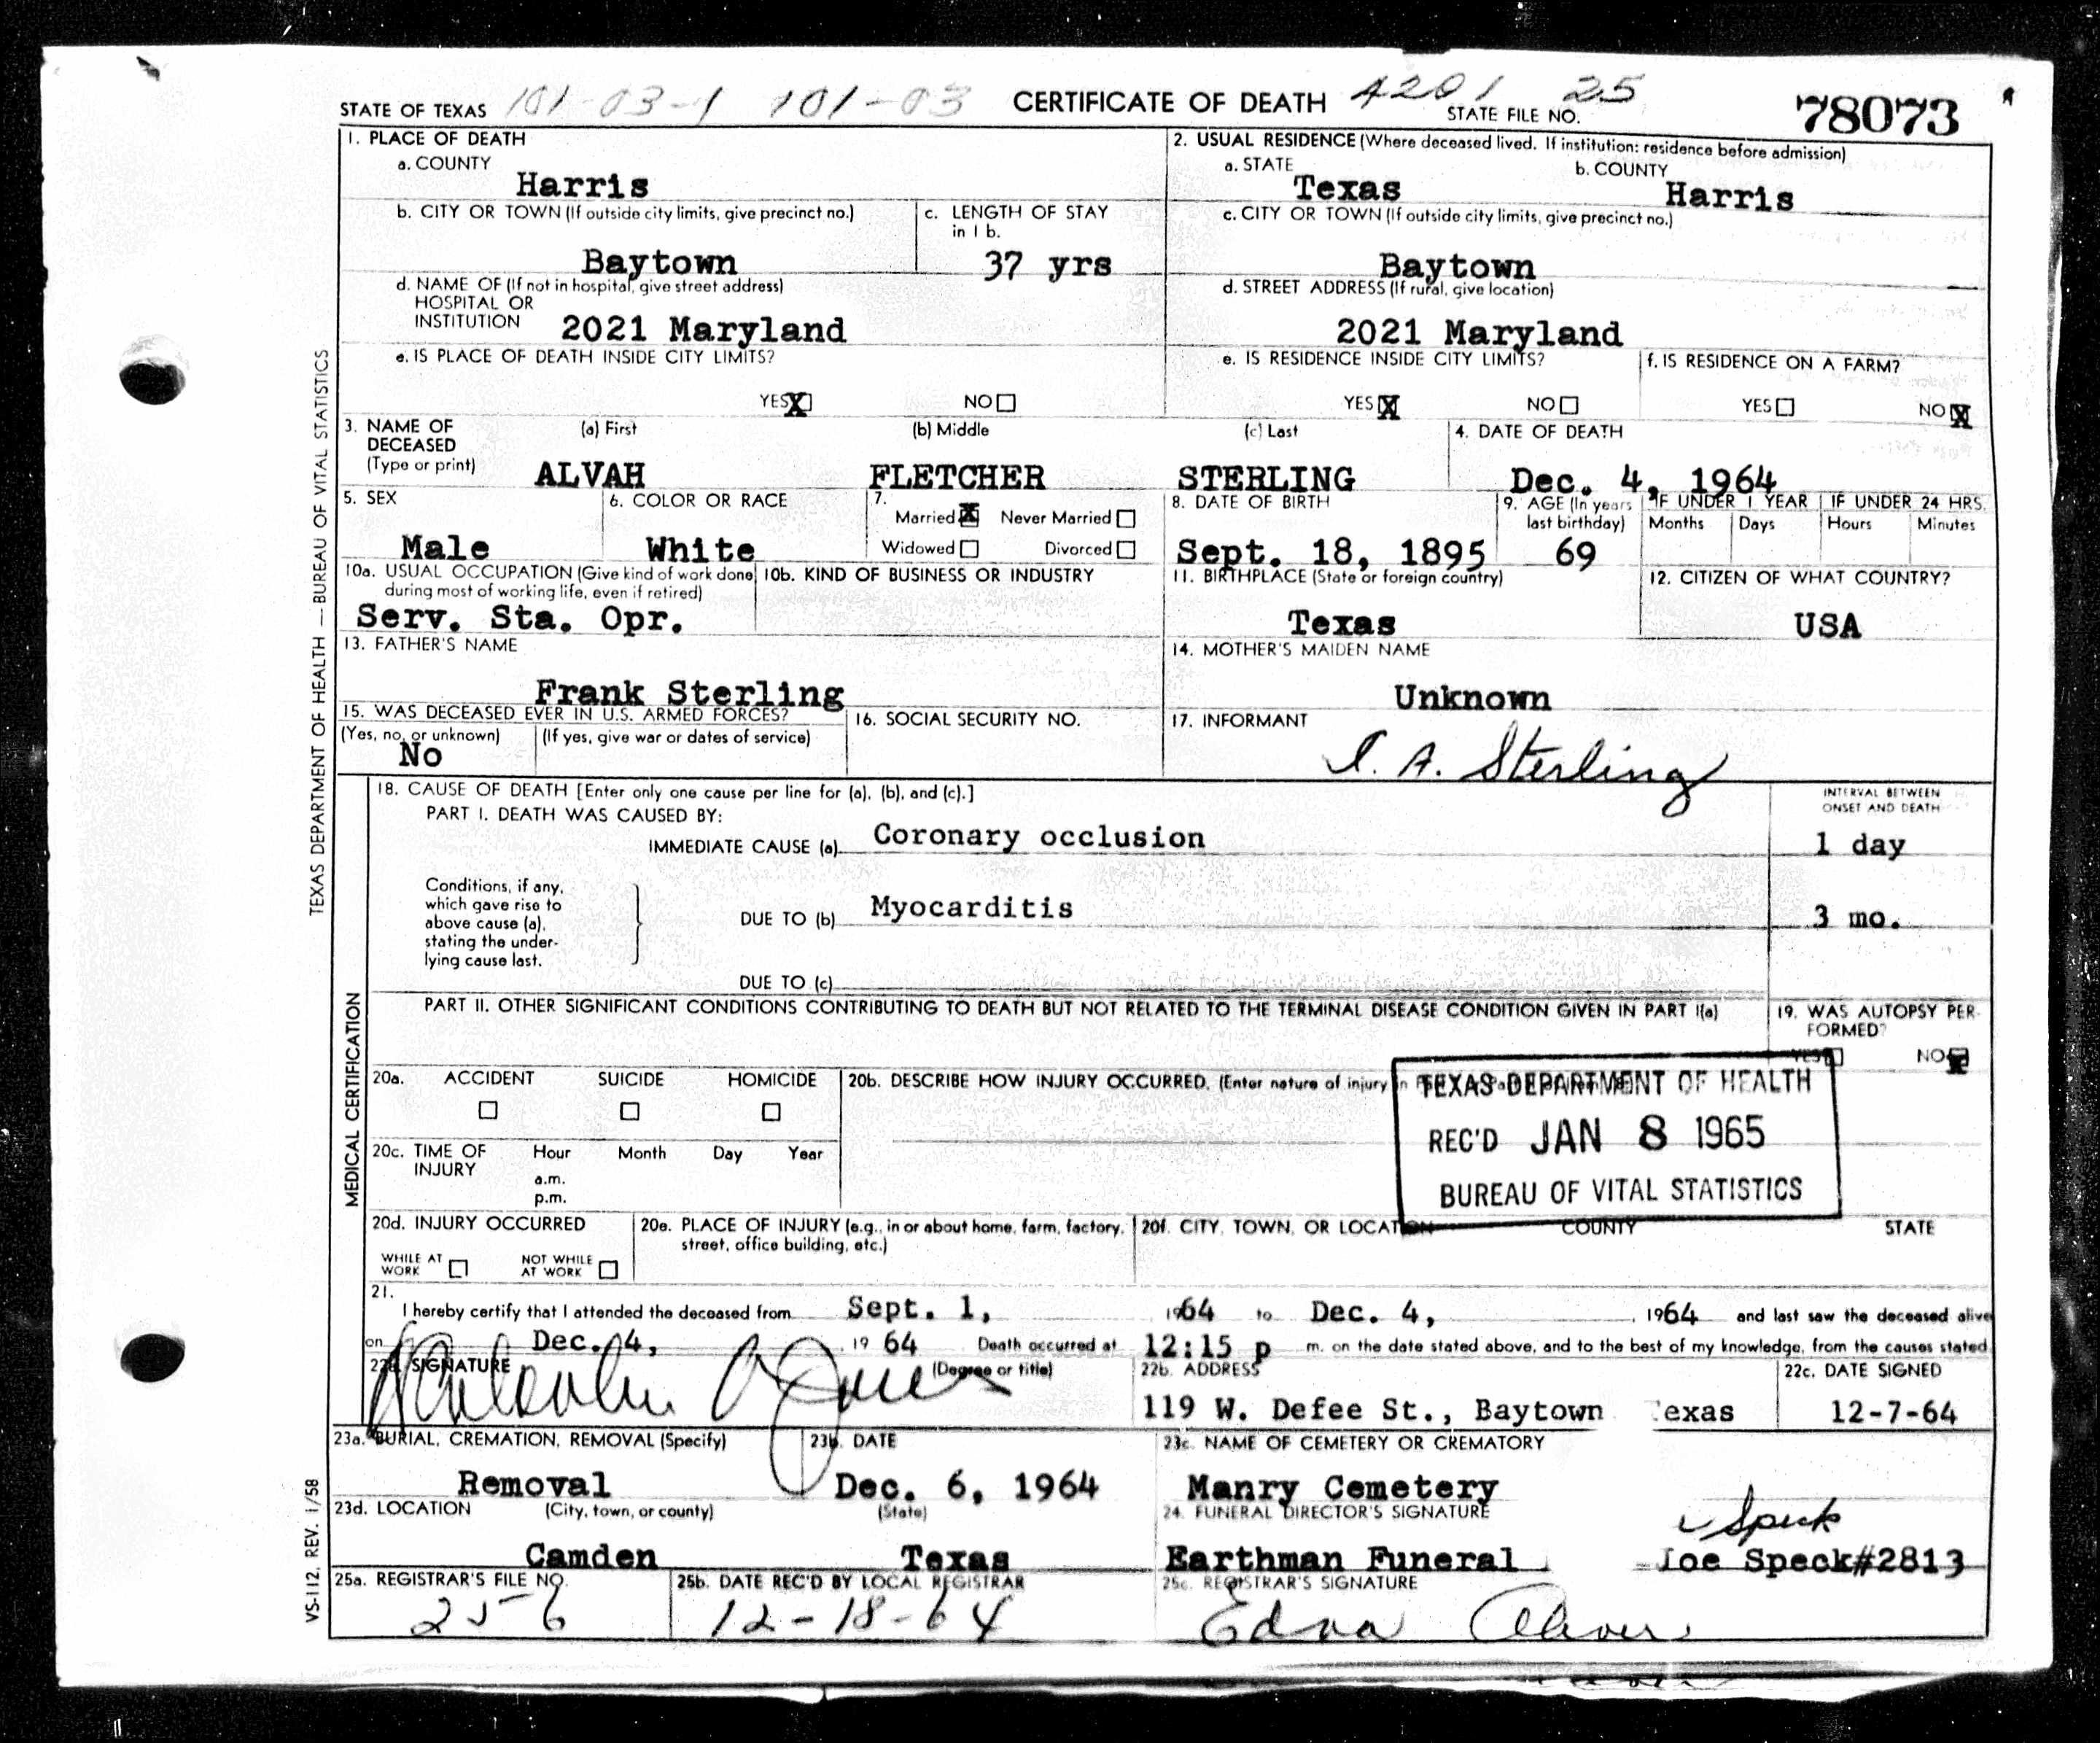 STATE OF TEXAS 101-03-1 101-03 CERTIFICATE OF DEATH 4201 25 STATE FILE NO. 78073
1. PLACE OF DEATH
a. COUNTY
Harris
2. USUAL RESIDENCE (Where deceased lived. If institution: residence before admission)
a. STATE b. COUNTY
Texas Harris
b. CITY OR TOWN (If outside city limits, give precinct no.)
Baytown
c. LENGTH OF STAY
in 1 b.
37 yrs
c. CITY OR TOWN (If outside city limits, give precinct no.)
Baytown
d. NAME OF (If not in hospital, give street address)
HOSPITAL OR
INSTITUTION 2021 Maryland
d. STREET ADDRESS (If rural, give location)
2021 Maryland
e. IS PLACE OF DEATH INSIDE CITY LIMITS?
YES X NO
e. IS RESIDENCE INSIDE CITY LIMITS?
YES X NO
f. IS RESIDENCE ON A FARM?
YES NO X
3. NAME OF
DECEASED
(Type or print)
(a) First (b) Middle (c) Last
ALVAH FLETCHER STERLING
4. DATE OF DEATH
Dec. 4, 1964
5. SEX
Male
6. COLOR OR RACE
White
7.
Married X Never Married
Widowed Divorced
8. DATE OF BIRTH
Sept. 18, 1895
9. AGE (In years
last birthday)
69
IF UNDER 1 YEAR IF UNDER 24 HRS.
Months Days Hours Minutes
10a. USUAL OCCUPATION (Give kind of work done
during most of working life, even if retired)
Serv. Sta. Opr.
10b. KIND OF BUSINESS OR INDUSTRY
11. BIRTHPLACE (State or foreign country)
Texas
12. CITIZEN OF WHAT COUNTRY?
USA
13. FATHER'S NAME
Frank Sterling
14. MOTHER'S MAIDEN NAME
Unknown
15. WAS DECEASED EVER IN U.S. ARMED FORCES?
(Yes, no, or unknown) (If yes, give war or dates of service)
No
16. SOCIAL SECURITY NO.
17. INFORMANT
A. Sterling
18. CAUSE OF DEATH [Enter only one cause per line for (a), (b), and (c).]
PART I. DEATH WAS CAUSED BY:
INTERVAL BETWEEN
ONSET AND DEATH
IMMEDIATE CAUSE (a) Coronary occlusion 1 day
Conditions, if any,
which gave rise to
above cause (a),
stating the under-
lying cause last.
DUE TO (b) Myocarditis 3 mo.
DUE TO (c)
PART II. OTHER SIGNIFICANT CONDITIONS CONTRIBUTING TO DEATH BUT NOT RELATED TO THE TERMINAL DISEASE CONDITION GIVEN IN PART I(a)
19. WAS AUTOPSY PER-
FORMED?
YES NO X
20a. ACCIDENT SUICIDE HOMICIDE
20b. DESCRIBE HOW INJURY OCCURRED. (Enter nature of injury in
TEXAS DEPARTMENT OF HEALTH
REC'D JAN 8 1965
BUREAU OF VITAL STATISTICS
20c. TIME OF
INJURY
Hour Month Day Year
a.m.
p.m.
20d. INJURY OCCURRED
WHILE AT
WORK
NOT WHILE
AT WORK
20e. PLACE OF INJURY (e.g., in or about home, farm, factory,
street, office building, etc.)
20f. CITY, TOWN, OR LOCATION COUNTY STATE
21.
I hereby certify that I attended the deceased from Sept. 1, 1964 to Dec. 4, 1964 and last saw the deceased alive
on Dec. 4, 19 64 Death occurred at 12:15 p m. on the date stated above, and to the best of my knowledge, from the causes stated
22a. SIGNATURE (Degree or title)
Malcolm
22b. ADDRESS
119 W. Defee St., Baytown Texas
22c. DATE SIGNED
12-7-64
23a. BURIAL, CREMATION, REMOVAL (Specify)
Removal
23b. DATE
Dec. 6, 1964
23c. NAME OF CEMETERY OR CREMATORY
Manry Cemetery
23d. LOCATION (City, town, or county) (State)
Camden Texas
24. FUNERAL DIRECTOR'S SIGNATURE
Speck
Earthman Funeral Joe Speck#2813
25a. REGISTRAR'S FILE NO.
256
25b. DATE REC'D BY LOCAL REGISTRAR
12-18-64
25c. REGISTRAR'S SIGNATURE
Edna Oliver
TEXAS DEPARTMENT OF HEALTH — BUREAU OF VITAL STATISTICS
MEDICAL CERTIFICATION
VS-112, REV. 1/58